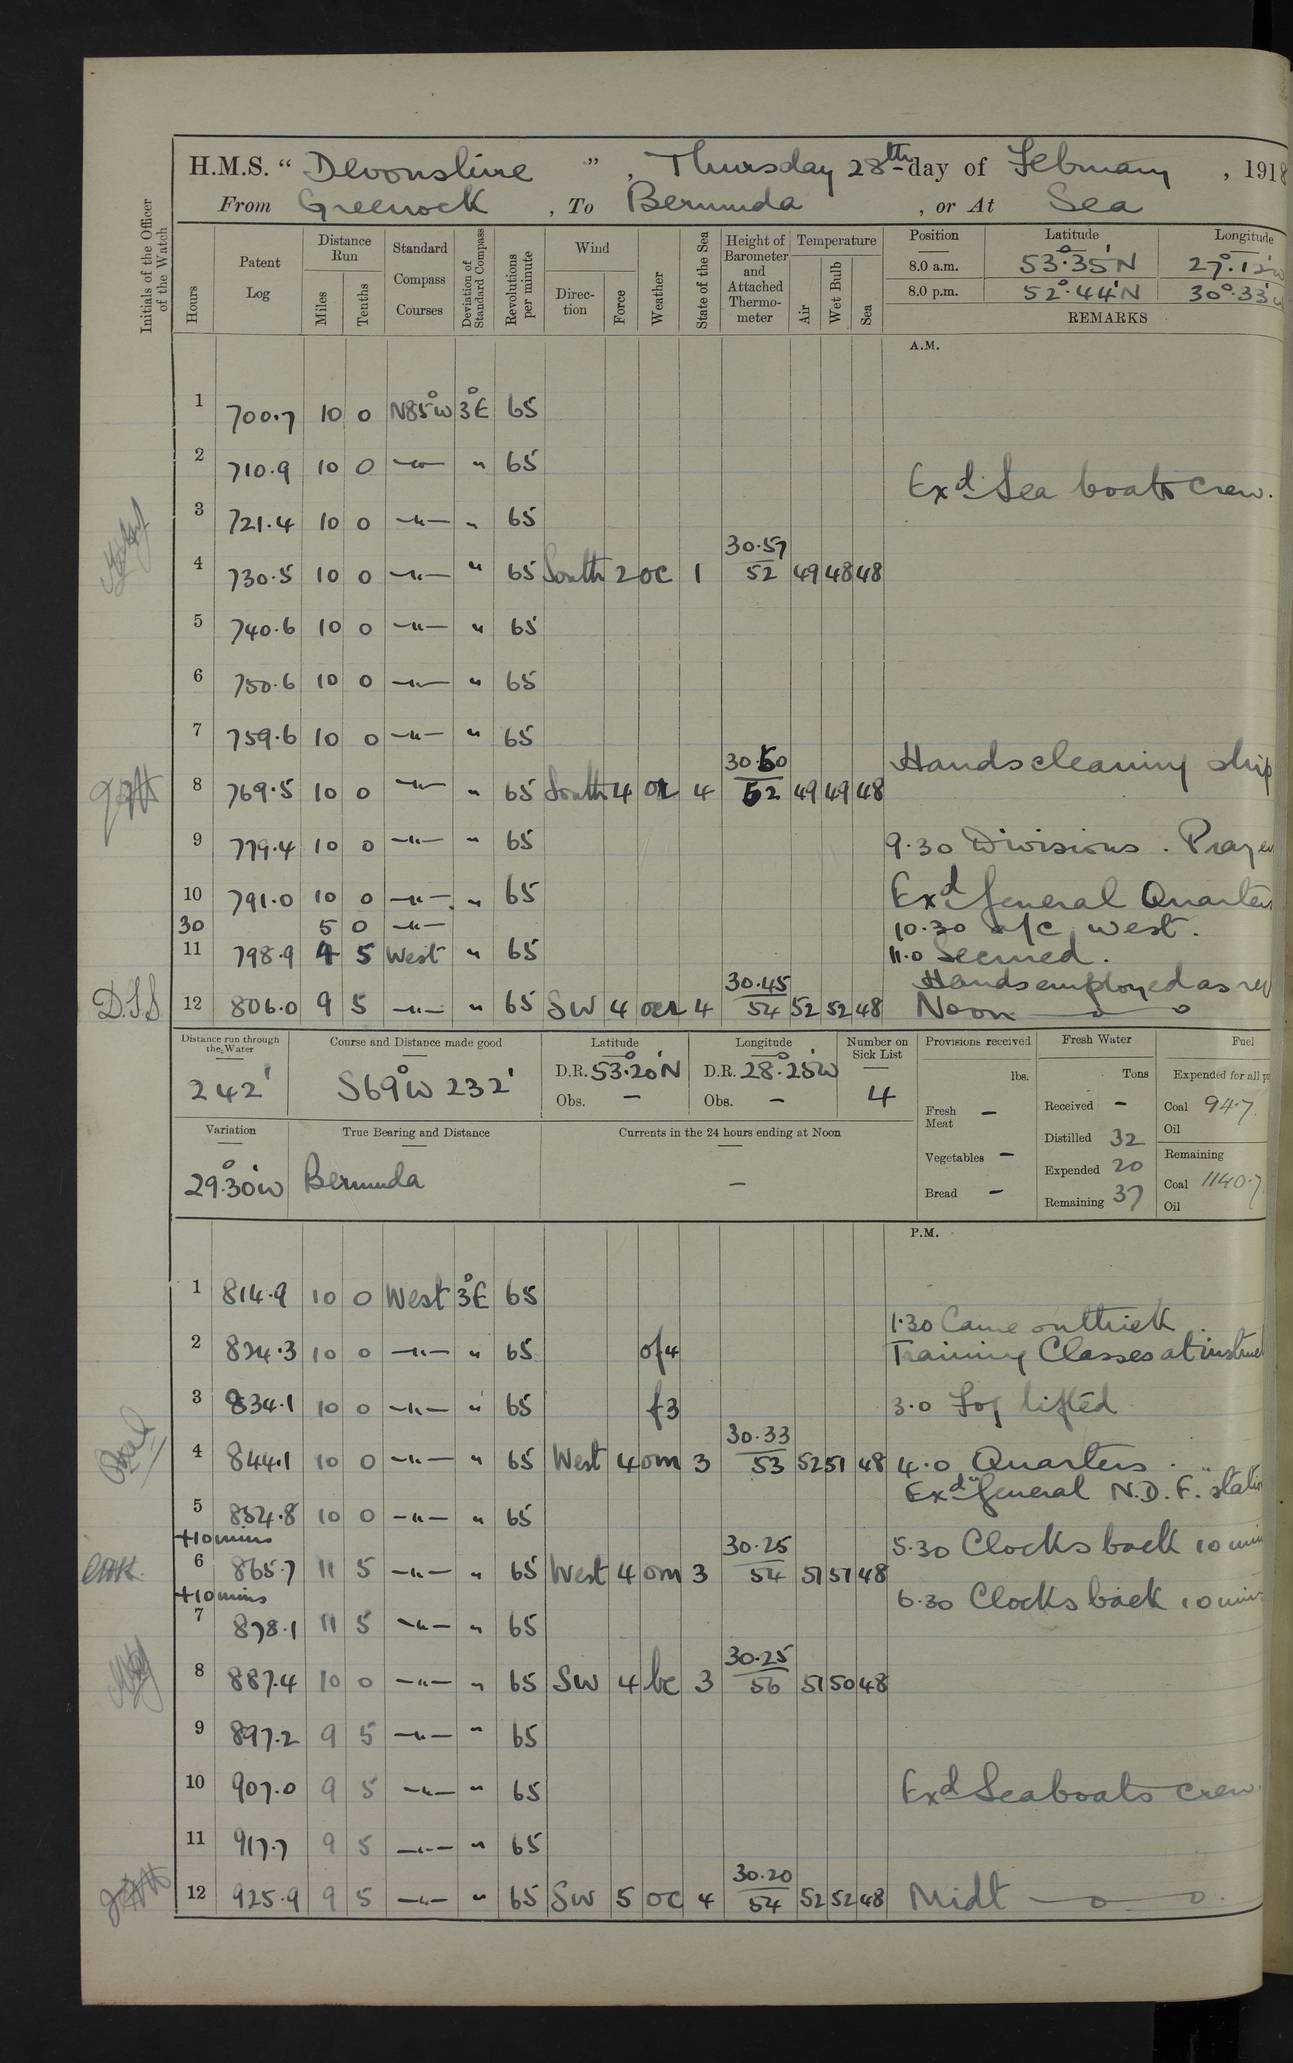 H.M.S. “ Devonshire ” , Thursday 28th day of February , 1918
From Greenock , To Bermuda , or At Sea
Initials of the Officer of the Watch
Hours Patent Log Distance Run Miles Tenths Standard Compass Courses Deviation of Standard Compass Revolutions per minute Wind Direction Force Weather State of the Sea Height of Barometer and Attached Thermometer Temperature Air Wet Bulb Sea Position Latitude Longitude
8.0 a.m. 53°.35'N 27°.12'W
8.0 p.m. 52°.44'N 30°.33'W
REMARKS
A.M.
1 700.7 10 0 N85°W 3°E 65
2 710.9 10 0 —"— " 65
Exd. Sea boats crew.
3 721.4 10 0 —"— " 65
4 730.5 10 0 —"— " 65 South 2 oc 1 30.57 52 49 48 48
5 740.6 10 0 —"— " 65
6 750.6 10 0 —"— " 65
7 759.6 10 0 —"— " 65
Hands cleaning ship
8 769.5 10 0 —"— " 65 South 4 or 4 30.50 52 49 49 48
9 779.4 10 0 —"— " 65 9.30 Divisions . Prayer
10 791.0 10 0 —"— " 65 Exd General Quarters
30 5 0 —"— 10.30 a/c west.
11 798.9 4 5 West " 65 11.0 Secured.
Hands employed as req
D.S.S 12 806.0 9 5 —"— " 65 SW 4 ocr 4 30.45 54 52 52 48 Noon
Distance run through the Water 242'
Course and Distance made good S69°W 232'
Latitude D.R. 53°.20'N Obs. —
Longitude D.R. 28°.25'W Obs. —
Number on Sick List 4
Provisions received lbs.
Fresh Meat —
Vegetables —
Bread —
Fresh Water Tons
Received —
Distilled 32
Expended 20
Remaining 37
Fuel
Expended for all
Coal 94.7
Oil
Remaining
Coal 1140.7
Oil
Variation 29°.30'W
True Bearing and Distance Bermuda
Currents in the 24 hours ending at Noon —
P.M.
1 814.9 10 0 West 3°E 65
1.30 Came on thick
2 824.3 10 0 —"— " 65 of4 Training Classes at instruct
3 834.1 10 0 —"— " 65 f3 3.0 Fog lifted
4 844.1 10 0 —"— " 65 West 4 om 3 30.33 53 52 51 48 4.0 Quarters .
Exd General N.D.F. station
5 854.8 10 0 —"— " 65
+10 mins 5.30 Clocks back 10 min
6 865.7 11 5 —"— " 65 West 4 om 3 30.25 54 51 51 48
+10 mins 6.30 Clocks back 10 mins
7 878.1 11 5 —"— " 65
8 887.4 10 0 —"— " 65 SW 4 bc 3 30.25 56 51 50 48
9 897.2 9 5 —"— " 65
10 907.0 9 5 —"— " 65 Exd Seaboats crew.
11 917.7 9 5 —"— " 65
12 925.9 9 5 —"— " 65 SW 5 oc 4 30.20 54 52 52 48 Midt